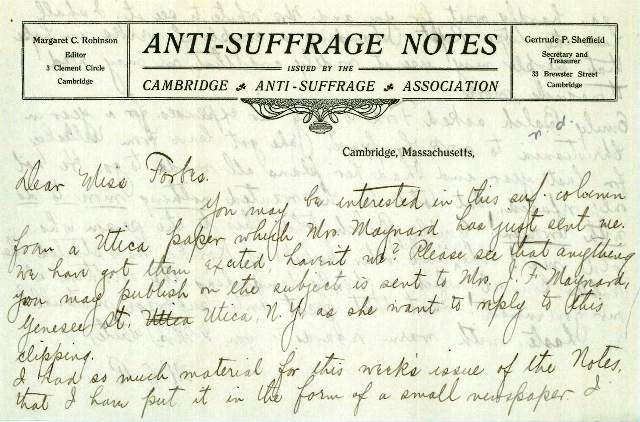 Margaret C. Robinson
Editor
3 Clement Circle
Cambridge
ANTI-SUFFRAGE NOTES
ISSUED BY THE
CAMBRIDGE ANTI-SUFFRAGE ASSOCIATION
Gertrude P. Sheffield
Secretary and
Treasurer
33 Brewster Street
Cambridge
n.d.
Cambridge, Massachusetts,
Dear Miss Forbes.
You may be interested in this suf. column
from a Utica paper which Mrs. Maynard has just sent me.
We have got them excited haven't we? Please see that anything
you may publish on the subject is sent to Mrs. J. F. Maynard,
Genesee St. Utica Utica, N.Y. as she want to reply to this
clipping.
I had so much material for this week's issue of the Notes,
that I have put it in the form of a small newspaper. I